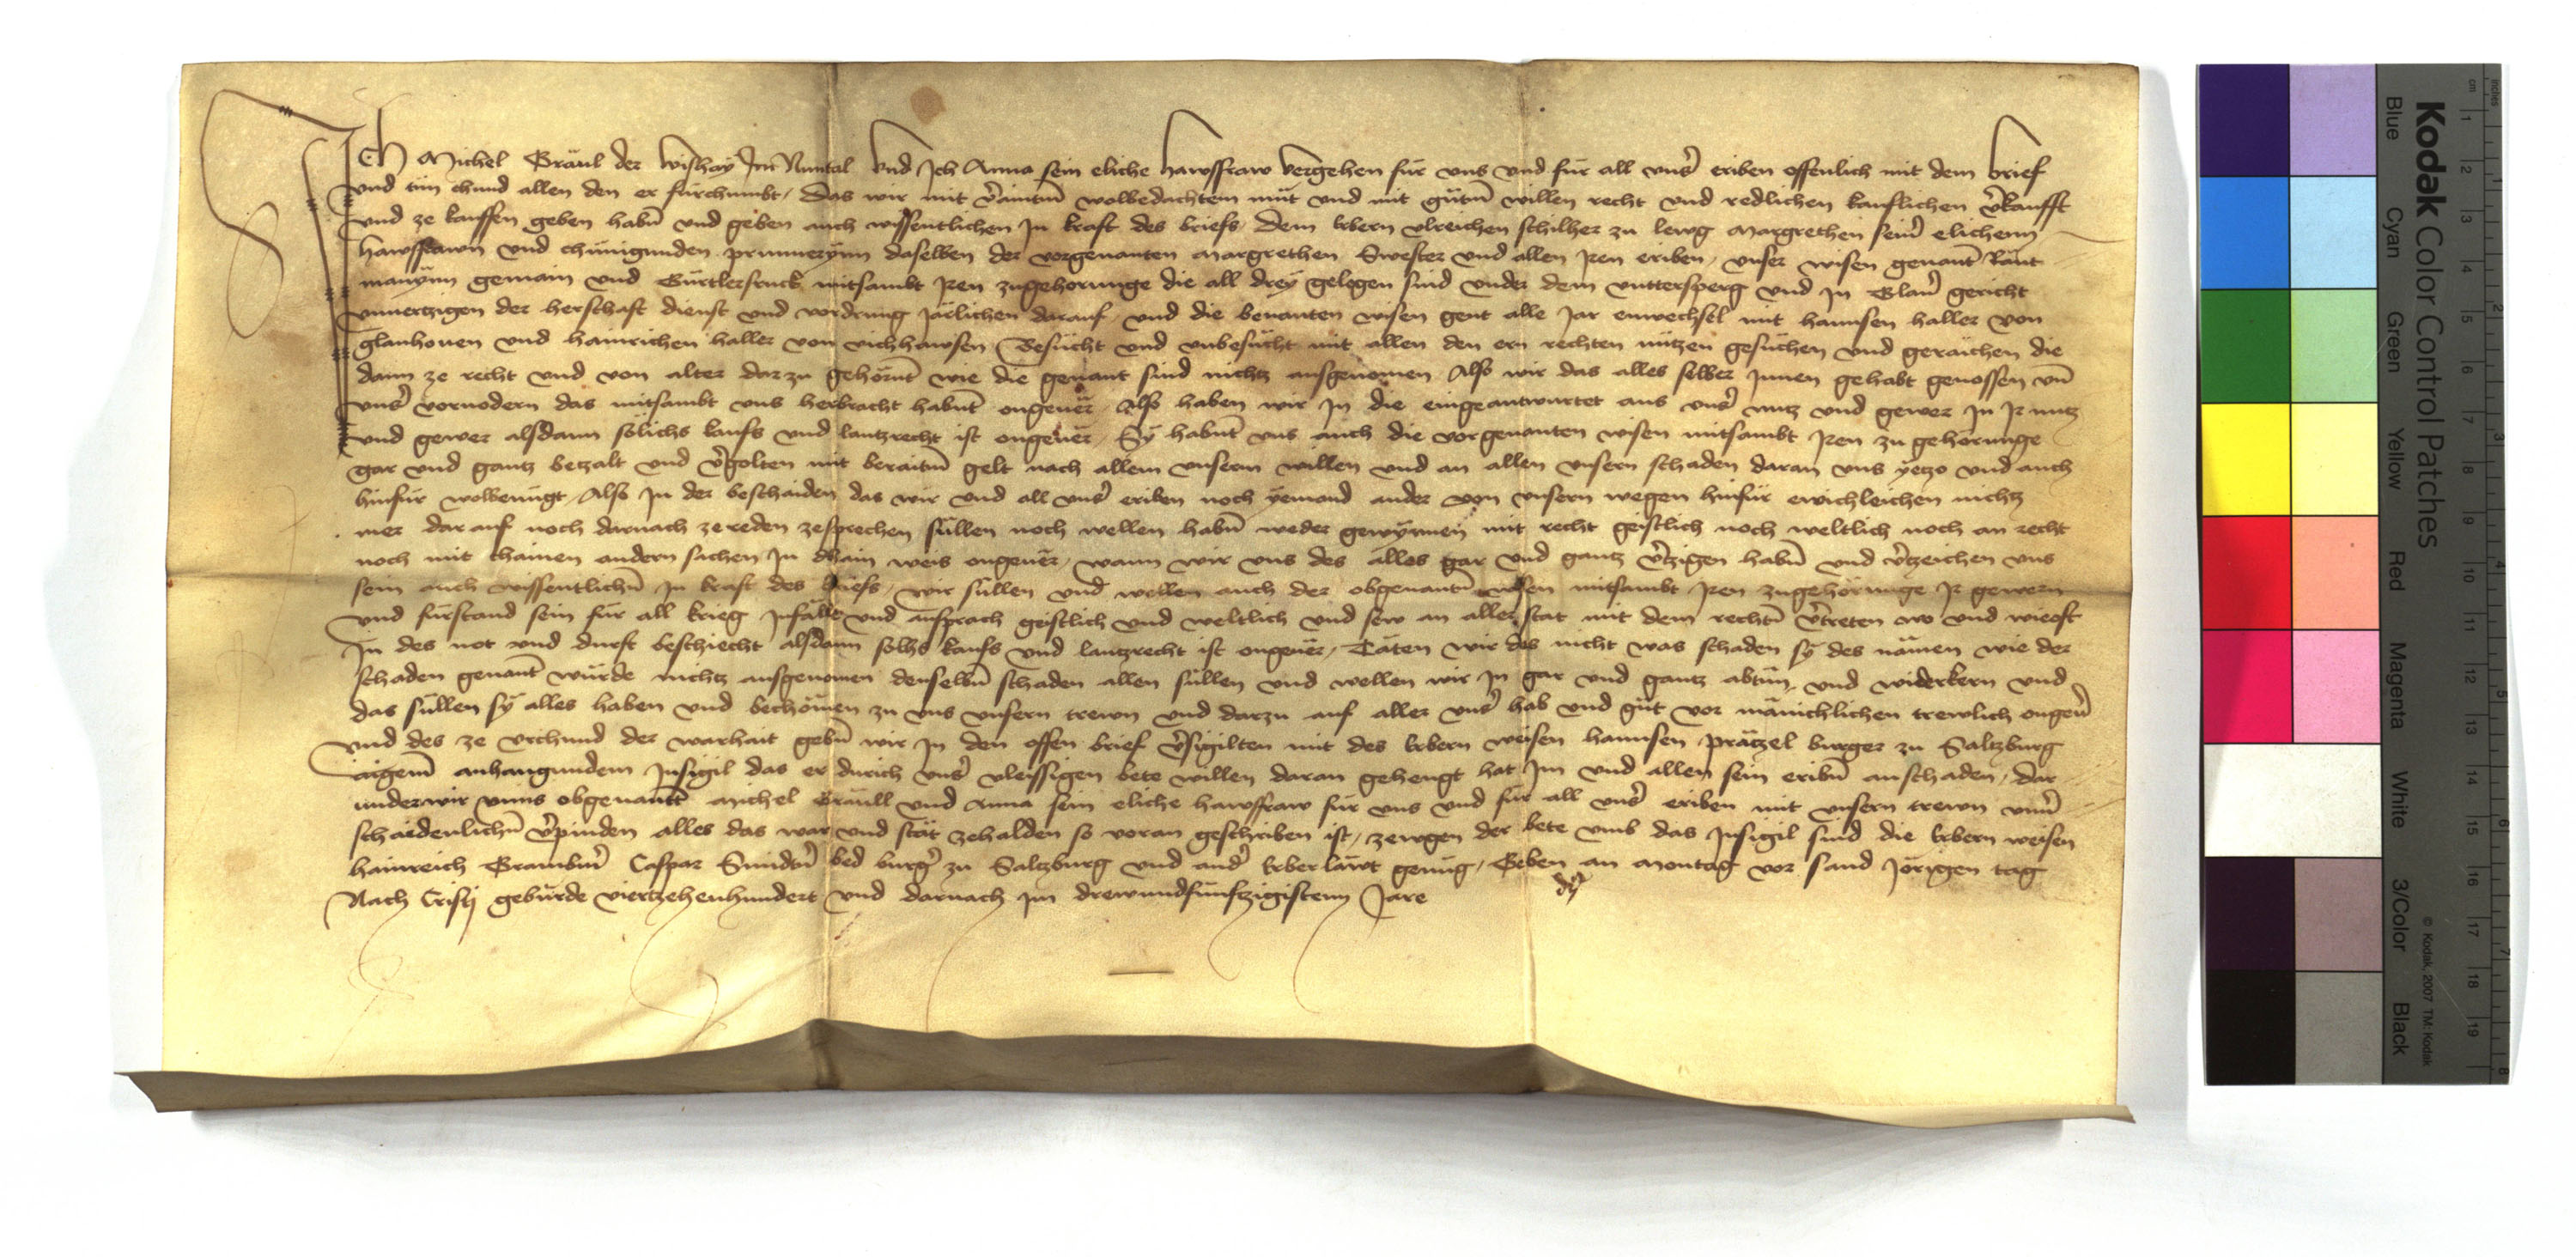 Ich Michel Bräul der wishay Im Nuntal Vnd Ich Anna sein eliche hawsfraw vergehen für vns vnd für all vnsˀ eriben offenlich mit dem brief
vnd tün chund allen den er fürchumbt / Das wir mit vˀaintm̄ wolbedachtem müt vnd mit gütm̄ willen recht vnd redlichen kauflichen vˀkaufft
vnd ze kauffen geben habn̄ vnd geben auch wissentlichen In kraft des briefs / dem Erbern vlreichen schilher zu lewg Margrethen seinˀ elichenn
hawsfrawn vnd chünigunden prunnerynn daselben der vorgenanten Margrethen Swester vnd allen Iren eriben / vnser wisen genant Raut
maygnn gemain vnd Gürtlerfruck mitsambt Iren zugehorunge die all drey gelegen sind vnder dem vnttersperg vnd In Glanˀ gericht
vnuertzigen der herschaft dienst vnd vordrung Järlichen darauf / vnd die benanten wisen gent alle Jar enwechsel mit hannsen haller von
glanhouen vnd hainrichen haller von vichhawsen / Besücht vnd vnbesücht mit allen den ern rechten nützen gesüchen vnd geraichen die
dann ze recht vnd von alter darzu gehörnt wie die genant sind nichtz ausgenomen Also wir das alles selber Innen gehabt genossen vn̄
vnsˀ vornodern das mitsambt vns herbracht habnt ongeuer / Also haben wir In die eingeantwurtet aus vnsˀ nutz vnd gewer In Ir nutz
vnd gewer alsdann sölichs kaufs vnd lantzrecht ist ongeuer / Sy habnt vns auch die vorgenanten wisen mitsambt Iren zu gehörunge
gar vnd gantz betzalt vnd vˀgolten mit beraitm̄ gelt nach allem vnserm willen vnd an allen vnsern schaden daran vns yetzo vnd auch
hinfür wolbenügt / Also In der beschaiden das wir vnd all vnsˀ eriben noch yemand ander von vnsern wegen hinfür ewichleichen nichtz
mer dar auf noch darnach ze reden zesprechen süllen noch wellen habn̄ weder gewynnen mit recht geistlich noch weltlich noch an recht
noch mit chainen andern sachen In dhain weis ongeuer / wann wir vns des alles gar vnd gantz vˀtzigen habn̄ vnd vˀtzeichen vns
sein auch wissentlichn̄ In kraft des briefs / wir süllen vnd wellen auch der obgenantn̄ wisen mitsambt Iren zugehörunge Ir gewern
vnd fürstand sein für all krieg Infälle vnd ansprach geistlich vnd weltlich vnd sew an aller stat mit dem rechtn̄ vˀtreten wo vnd wieoft
In des not vnd durft beschiecht alsdann solhs kaufs vnd lantzrecht ist ongeuer / Täten wir des nicht was schaden sy des nämen wie der
schaden genant würde nichtz ausgenomen denselbn̄ schaden allen süllen vnd wellen wir In gar vnd gantz abtün vnd widerkern vnd
das süllen sy alles haben vnd bechömen zu vns vnsern trewn vnd darzu auf aller vnsˀ hab vnd güt vor mänichlichen trewlich ongeuˀ
vnd des ze vrchund der warhait gebn̄ wir In den offen brief vˀsigilten mit des Erbern weisen hannsen Prätzel burger zu Saltzburg
aigem̄ anhangundem Insigil das er durich vnsˀ vleissigen bete willen daran gehengt hat Im vnd allen sein eribn̄ anschaden / dar
under wir vnns obgenantt Michel Bräull vnd Anna sein eliche hawsfraw für vns vnd für all vnsˀ eriben mit vnsern trewn vnuˀ
schaidenlichn̄ vˀpinden alles das war vnd stät zehalden so voran geschriben ist / zewgen der bete vmb das Insigil sind die Erbern weisen
hainreich Gransbmˀ Caspar Smidtnˀ bed burgˀ zu Saltzburg vnd andˀ Erber läwt genüg / Geben an Montag vor sand Jörigen tag
Nach Cristi gebürde viertzehenhundert vnd darnach Im drewundfünfzigistem Jare
Kodak Color Control Patches
Blue Cyan Green Yellow Red Magenta White 3/Color Black
© Kodak, 2007 TM: Kodak
cm 1 2 3 4 5 6 7 8 9 10 11 12 13 14 15 16 17 18 19
inches 1 2 3 4 5 6 7 8